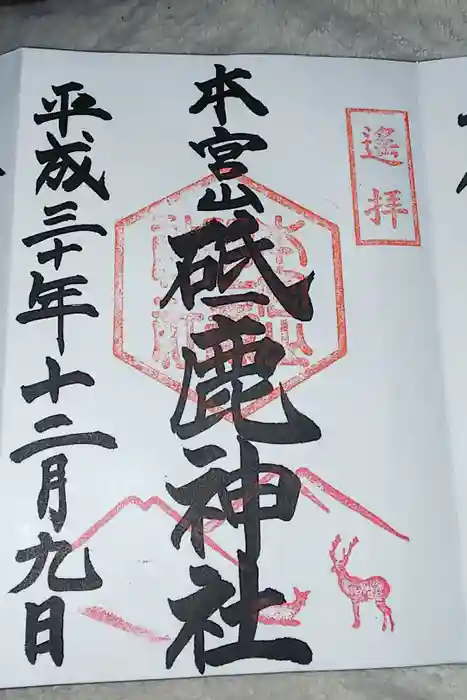 遙拝
本宮山
砥鹿神社
平成三十年十二月九日